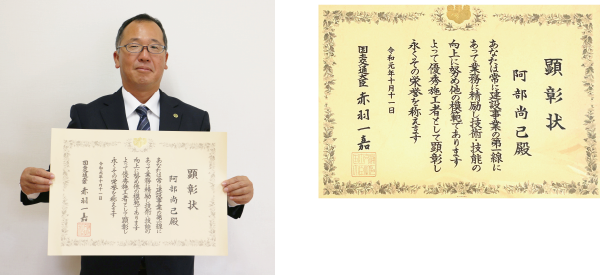 顕彰状
阿部尚己殿
あなたは常に建設事業の第一線に
あって業務に精励し技術・技能の
向上に努め他の模範であります
よって優秀施工者として顕彰し
永くその栄誉を称えます
令和元年十月十一日
国土交通大臣 赤羽一嘉
顕彰状
阿部尚己殿
あなたは常に建設事業の第一線に
あって業務に精励し技術・技能の
向上に努め他の模範であります
よって優秀施工者として顕彰し
永くその栄誉を称えます
令和元年十月十一日
国土交通大臣 赤羽一嘉